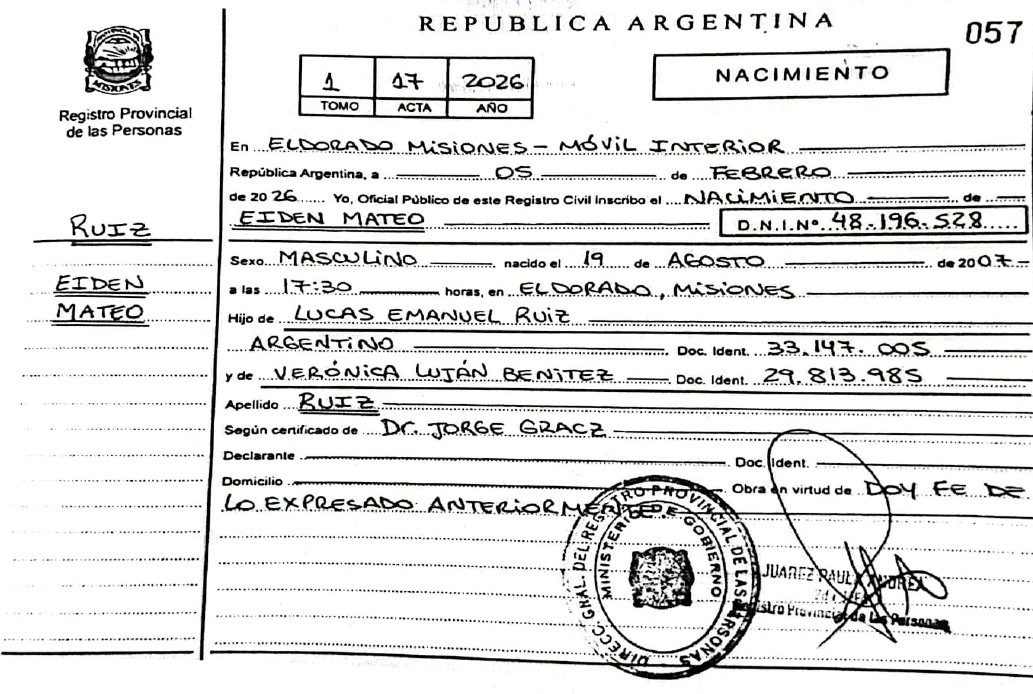 REPUBLICA ARGENTINA
057
MISIONES
Registro Provincial
de las Personas
1 17 2026
TOMO ACTA AÑO
NACIMIENTO
En ELDORADO MISIONES - MÓVIL INTERIOR
República Argentina, a 05 de FEBRERO
de 2026 Yo, Oficial Público de este Registro Civil inscribo el NACIMIENTO de
EIDEN MATEO D.N.I.Nº 48.196.528
RUIZ
EIDEN
MATEO
Sexo MASCULINO nacido el 19 de AGOSTO de 2007
a las 17:30 horas, en ELDORADO, MISIONES
Hijo de LUCAS EMANUEL RUIZ
ARGENTINO Doc. Ident. 33.147.005
y de VERÓNICA LUJÁN BENITEZ Doc. Ident. 29.813.985
Apellido RUIZ
Según certificado de Dr. JORGE GRACZ
Declarante Doc. Ident.
Domicilio Obra en virtud de DOY FE DE
LO EXPRESADO ANTERIORMENTE.
DIRECC. GRAL. DEL REGISTRO PROVINCIAL DE LAS PERSONAS
MINISTERIO DE GOBIERNO
JUAREZ PAULA ANDREA
Registro Provincial de las Personas